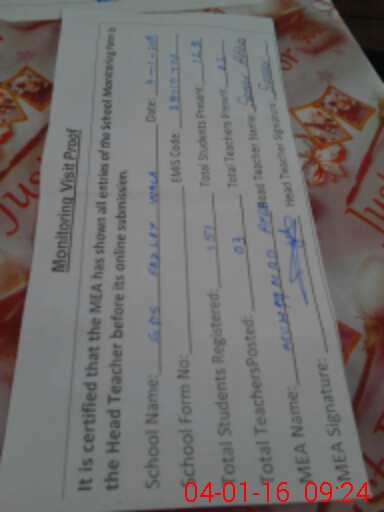 Monitoring Visit Proof
It is certified that the MEA has shown all entries of the School Monitoring form
the Head Teacher before its online submission.
School Name: GPS FAZLAY WALA Date: 4-1-
School Form No: EMIS Code
Total Students Registered: 151 Total Students Present: 128
Total Teachers Posted: 03 Total Teachers Present:
MEA Name: MUHAMMAD Head Teacher Name
MEA Signature: Head Teacher Signature
04-01-16 09:24